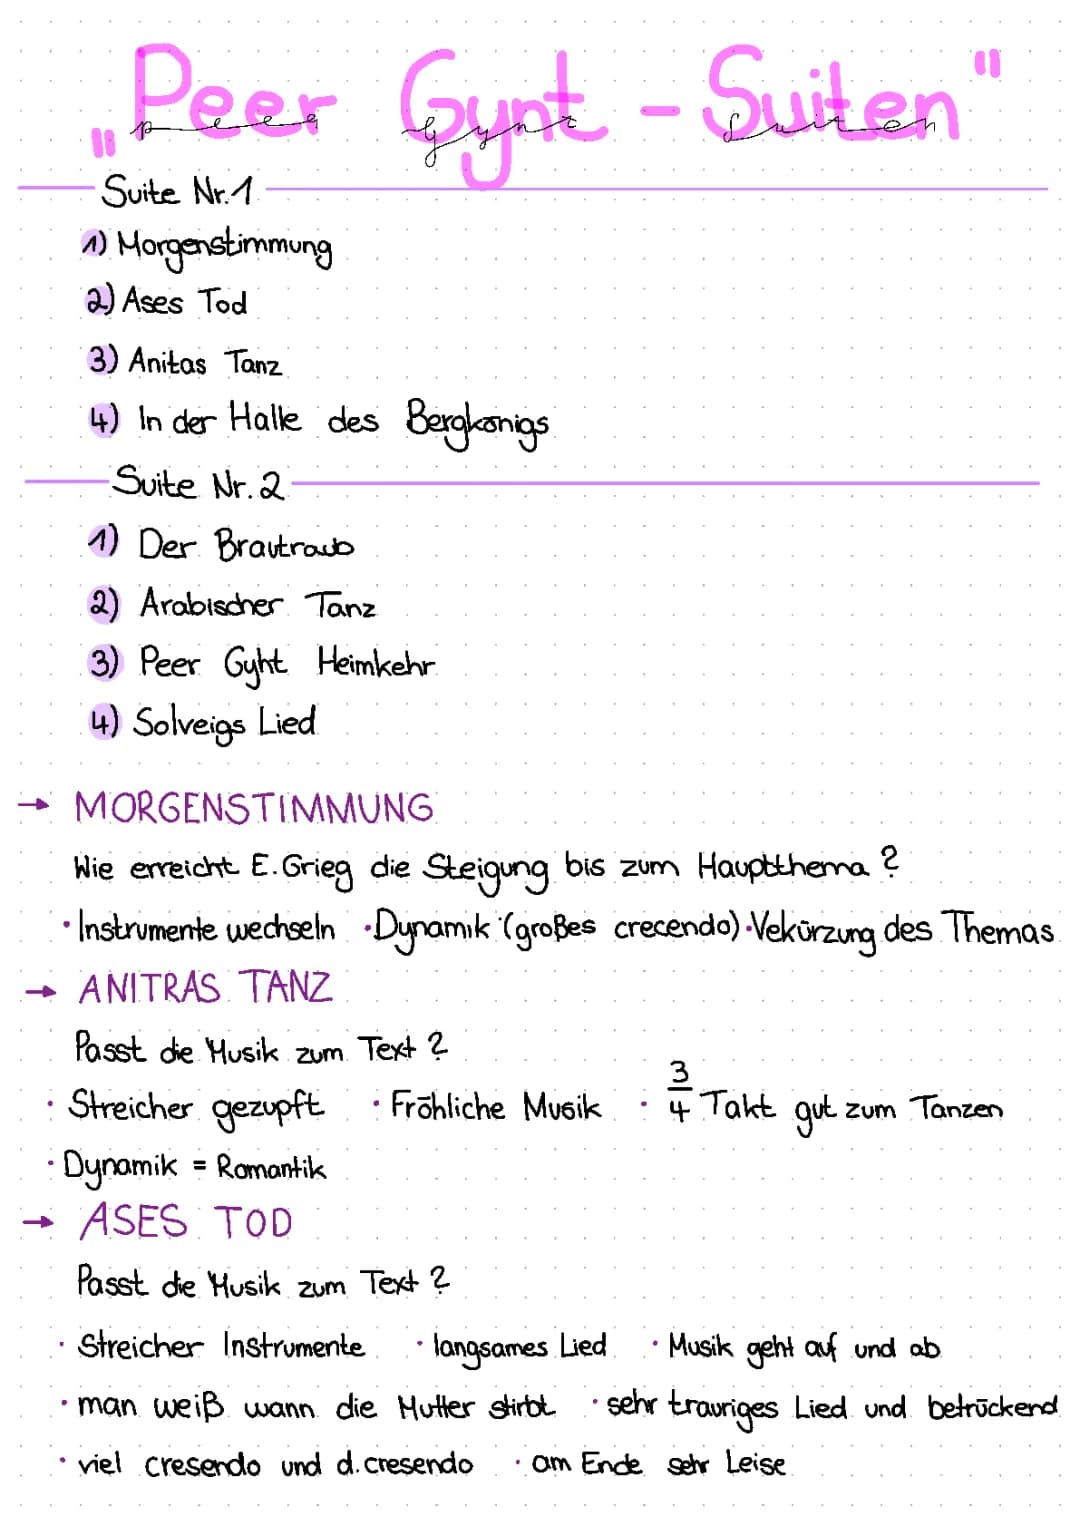 „Peer Gynt - Suiten"
Peer Gynt Suiten
Suite Nr. 1
1) Morgenstimmung
2) Ases Tod
3) Anitas Tanz
4) In der Halle des Bergkönigs
Suite Nr. 2
1) Der Brautraub
2) Arabischer Tanz
3) Peer Gyht Heimkehr
4) Solveigs Lied
→ MORGENSTIMMUNG
Wie erreicht E. Grieg die Steigung bis zum Hauptthema ?
· Instrumente wechseln · Dynamik (großes crecendo) · Vekürzung des Themas
→ ANITRAS TANZ
Passt die Musik zum Text ?
· Streicher gezupft · Fröhliche Musik · 3/4 Takt gut zum Tanzen
· Dynamik = Romantik
→ ASES TOD
Passt die Musik zum Text ?
· Streicher Instrumente · langsames Lied · Musik geht auf und ab
· man weiß wann die Mutter stirbt · sehr trauriges Lied und betrückend
· viel cresendo und d.cresendo · am Ende sehr Leise